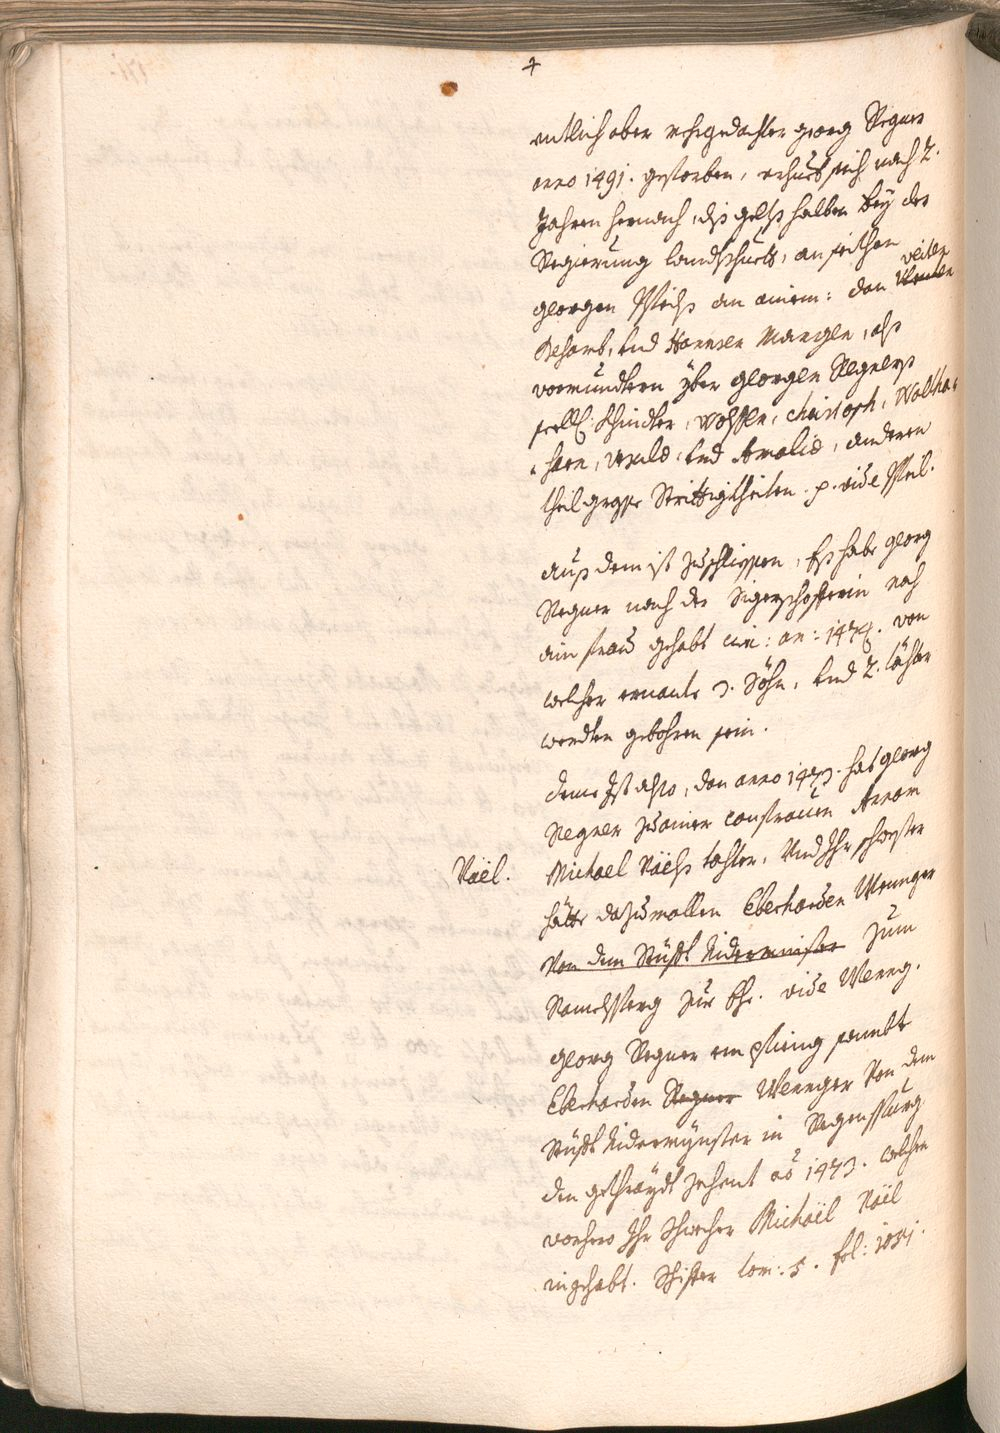 entlich aber vehrgedachter georg Regner
anno 1491. gestorben, erhueb sich nach 2.
Jahren hernach, diss gelts halben bey der
Regierung landtshuett, an seithen
georgen an ainem: dan veiten
und Hannsen Mangln, alss
vormundtern yber georgen Regners
seell: Khinder, Wolffen, Christoph, Baltha-
-sarn, Ursula, und Amalia, anderen
theil grosse Strittigkheiten. p. vide
auss dem ist zuschliessen, Ess habe georg
Regner nach der noch
ain frau gehabt circ: an: 147. von
welcher ernante 3. Söhn, und 2. töchter
werdten gebohren sein.
deme Ist also, dan anno 1473. hat georg
Regner zu ainer consrauen Annam
Näël. Michael Näëls tochter, Und Ihr schwester
hätte dazumallen Eberharden Wennger
Von dem Stüfft Nidermünster zum
Ramelsperg zur Ehe. vide Wenng.
georg Regner empfieng sambt
Eberharden Regner Wennger Von dem
Stüfft Nidermynster in Regenspurg
den gethraydt zehent aõ 1473. welchen
vorhero Ihr Schwecher Michaël Näël
ingehabt. tom: 5. fol: 1051.